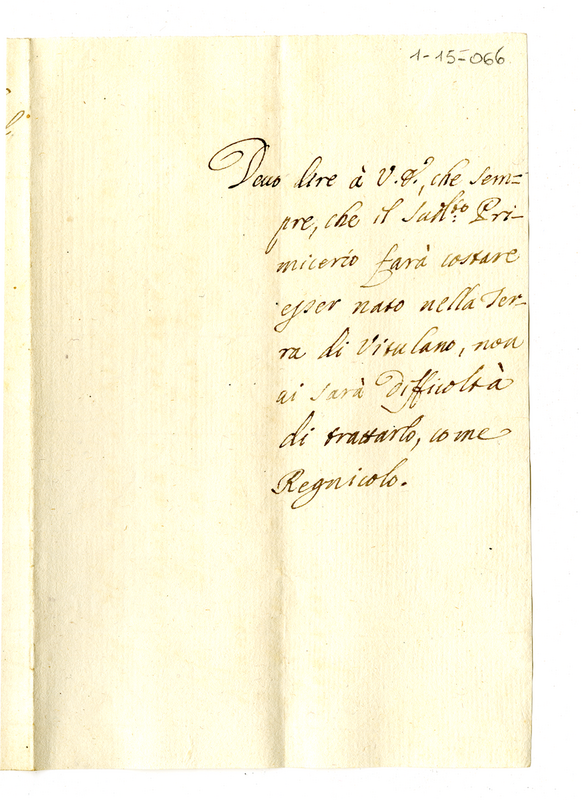 1-15-066
Devo dire à V.S., che sem=
pre, che il sud.to Pri-
micerio farà costare
esser nato nella Ter-
ra di Vitulano, non
ui sarà difficoltà
di trattarlo, come
Regnicolo.